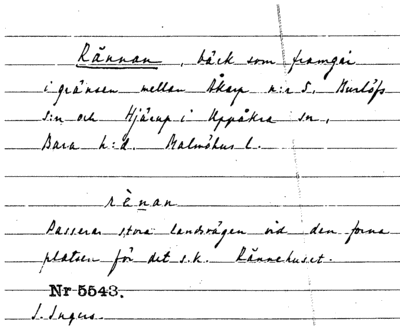 Rännan, bäck som framgår
i gränsen mellan Åkarp n:r 5, Burlöfs
s:n och Hjärup i Uppåkra sn,
Bara h:d. Malmöhus l.
rènan
Passerar stora landsvägen vid den forna
platsen för det s.k. Rännehuset.
Nr 5543.
I. Ingers.